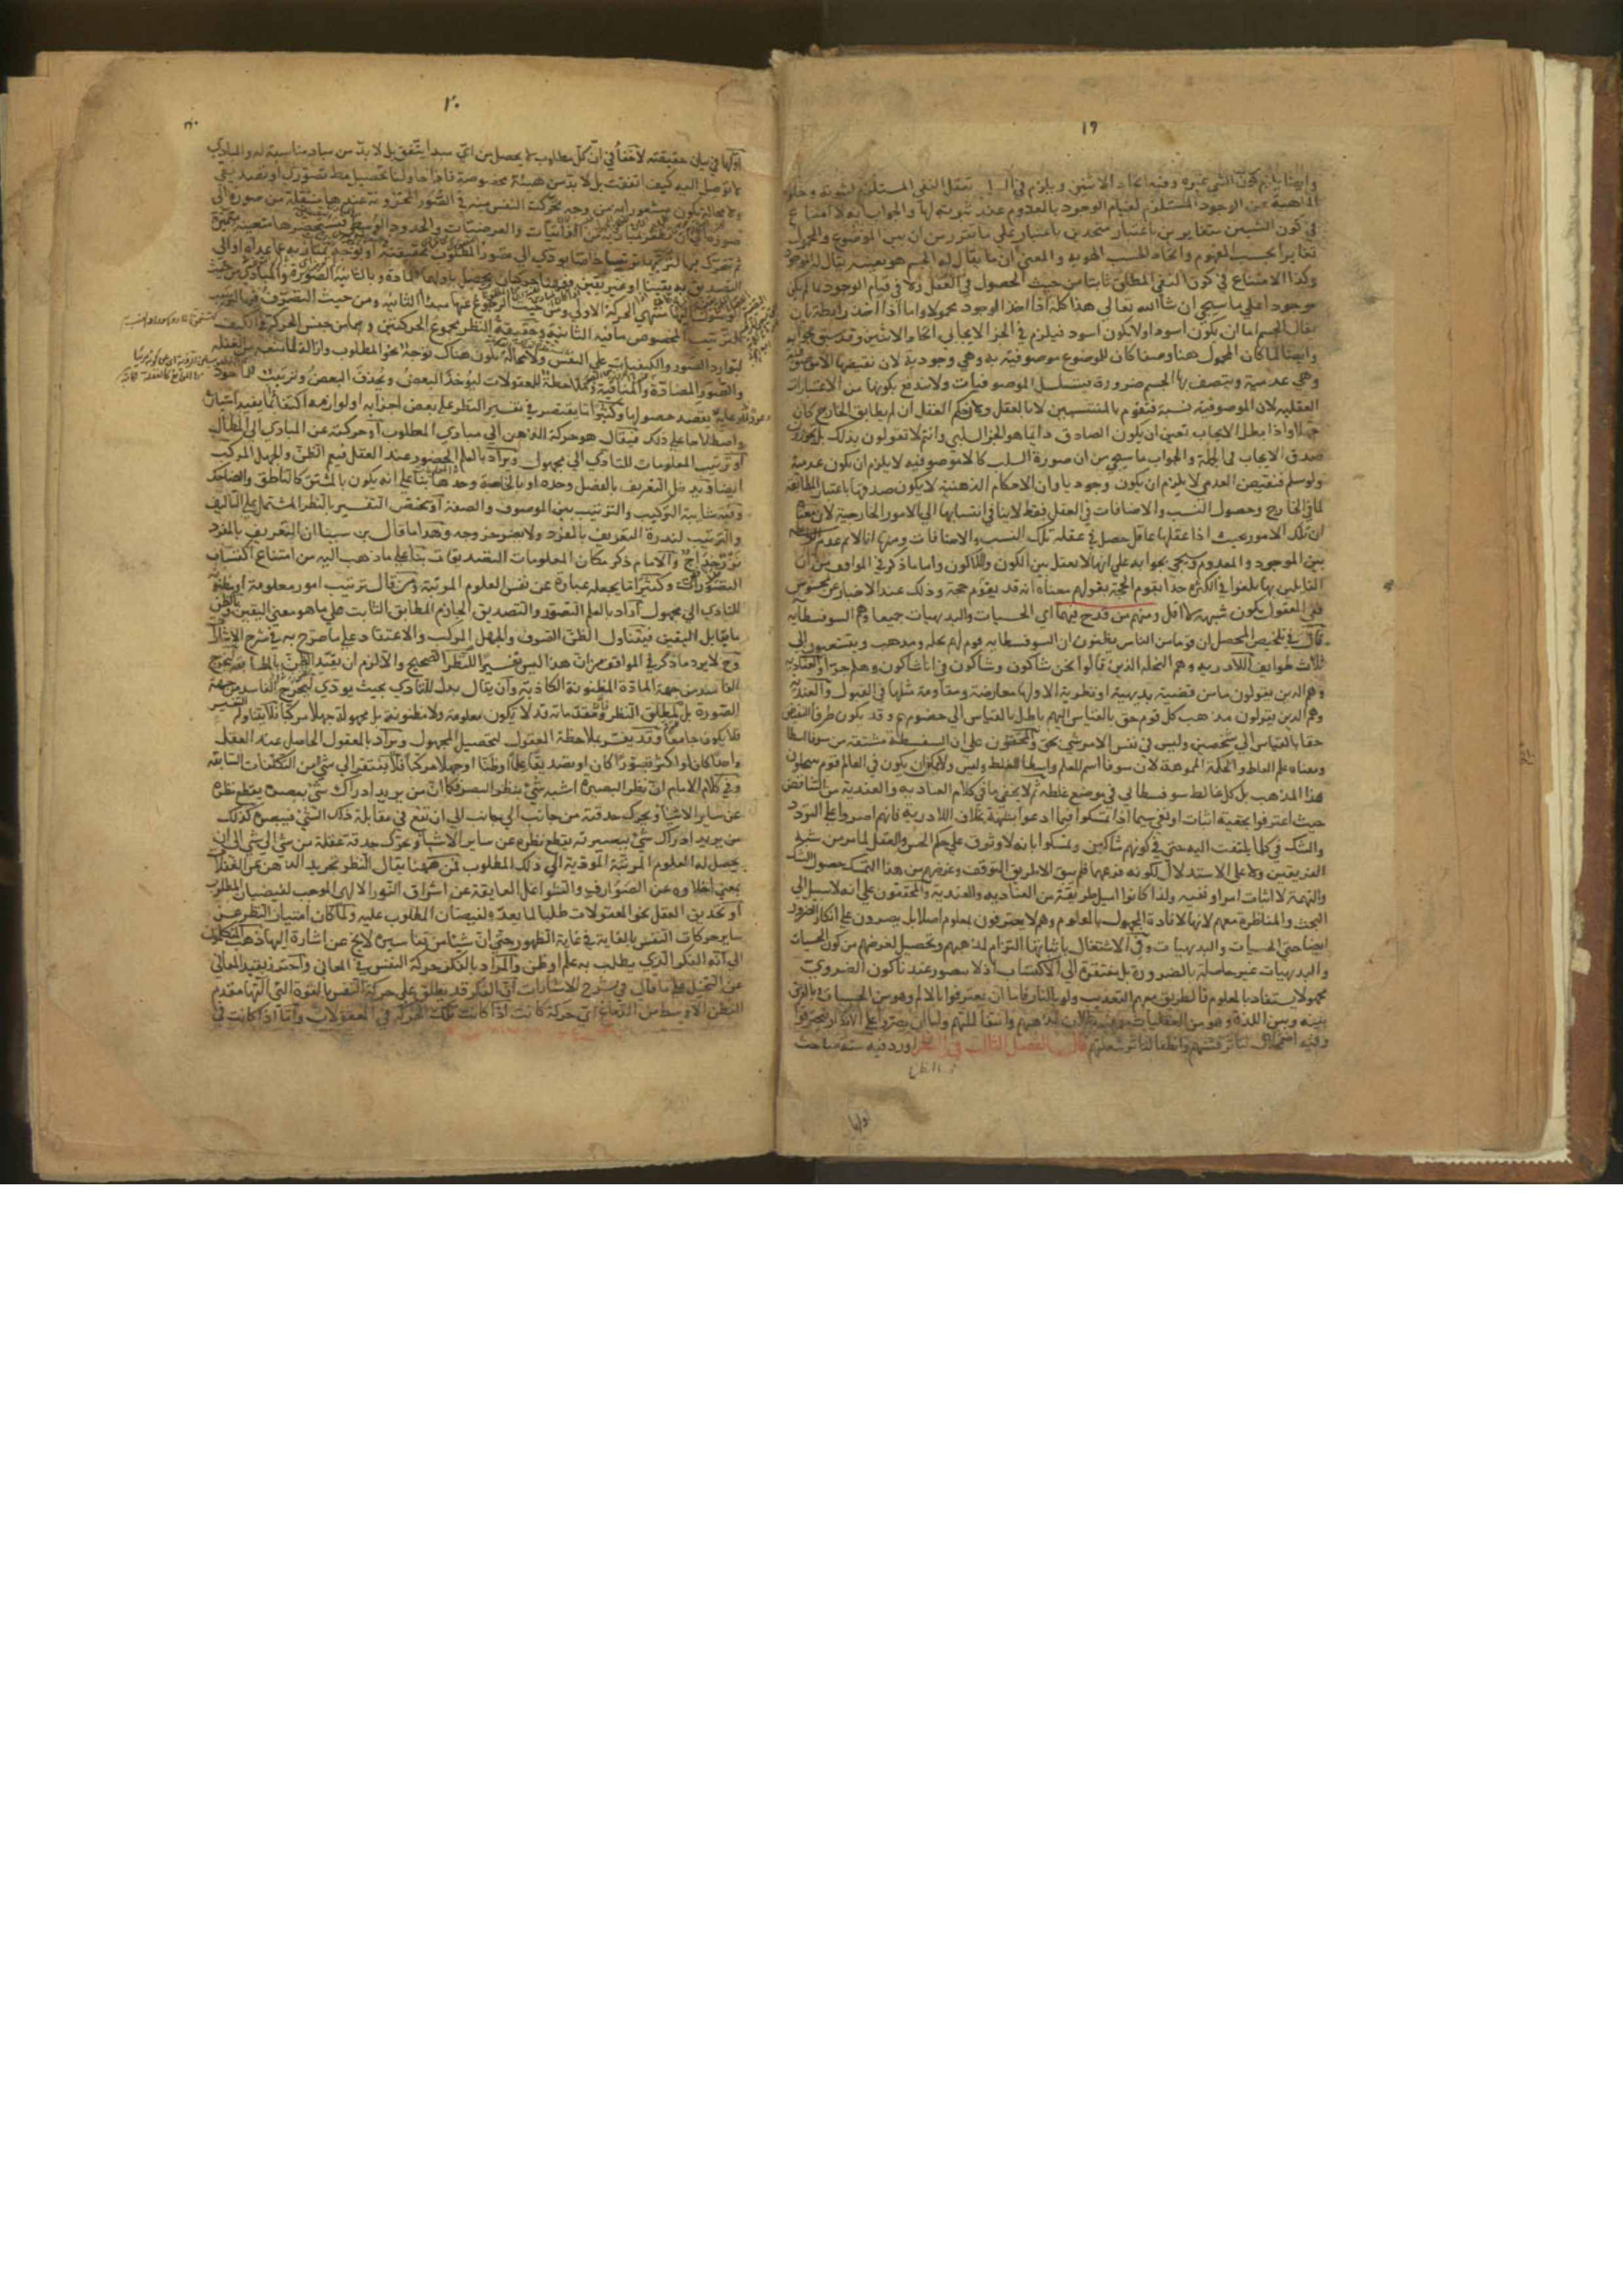 ١٩
وايضا يلزم كون الشي غيره وفيه اتحاد الاثنين ويلزم في السلب تعقل النفي المستلزم لثبوته وخلو
الماهية عن الوجود المستلزم لقيام الوجود بالمعدوم عند ثبوته لها والجواب انه لا امتناع
في كون الشيئين متغايرين باعتبار متحدين باعتبار على ما تقرر من ان بين الموضوع والمحمول
تغايرا بحسب المفهوم واتحادا بحسب الهوية والمعنى ان ما يقال له الجسم هو بعينه يقال له الموجود
وكذا لا امتناع في كون النفي المطلق ثابتا من حيث الحصول في العقل ولا في قيام الوجود بما لم يكن
موجودا على ما سيجي ان شا الله تعالى هذا كله اذا اخذ الوجود محمولا واما اذا اخذ رابطة بان
يقال الجسم اما ان يكون اسود او لا يكون اسود فيلزم في الجزء الايجابي اتحاد الاثنين وقد سبق بجوابه
وايضا لما كان المحمول هنا وصفا كان للموضوع موصوفية به وهي وجودية لان نقيضها اللاموصوفية
وهي عدمية ويتصف بها الجسم ضرورة فيتسلسل الموصوفيات ولا تندفع بكونها من الاعتبارات
العقلية لان الموصوفية نسبة فتقوم بالمنتسبين لا بالعقل ولان حكم العقل ان لم يطابق الخارج كان
جهلا واذا بطل الايجاب تعين ان يكون الصادق دايما هو الجزء السلبي وانتم لا تقولون بذلك بل يجوز
صدق الايجاب في الجملة والجواب ما سيجي من ان صورة السلب كاللاموصوفية لا يلزم ان يكون عدمية
ولو سلم فنقيض العدمي لا يلزم ان يكون وجوديا وان الاحكام الذهنية لا يكون صدقها باعتبار المطابقة
لما في الخارج وحصول النسب والاضافات في العقل فقط لا ينافي انتسابها الى الامور الخارجية لان معنا
ان تلك الامور بحيث اذا عقلها عاقل حصل في عقله تلك النسب والاضافات ومنها انا لا نم عدم الواسطة
بين الموجود والمعدوم وسيجي بجوابه على انها لا تعقل بين الكون واللاكون واما ما ذكر في المواقف من ان
القايلين بها بلغوا في الكثرة حدا يقوم الحجة بقولهم معناه انه قد يقوم حجة وذلك عند الاخبار عن محسوس
ففي المعقول يكون شبهة لا اقل ومنهم من قدح فيهما اي الحسيات والبديهيات جميعا وهم السوفسطايية
قال في تلخيص المحصل ان قوما من الناس يظنون ان السوفسطايية قوم لهم نحلة ومذهب ويتشعبون الى
ثلاث طوايف اللاادرية وهم الذين قالوا نحن شاكون وشاكون في انا شاكون وهلم جرا والعنادية
وهم الذين يقولون ما من قضية بديهية او نظرية الا ولها معارضة ومقاومة مثلها في القبول والعندية
وهم الذين يقولون مذهب كل قوم حق بالقياس اليهم باطل بالقياس الى خصومهم وقد يكون طرفا النقيض
حقا بالقياس الى شخصين وليس في نفس الامر شي بحق والمحققون على ان السفسطة مشتقة من سوفا اسطا
ومعناه علم الغلط والحكمة المموهة لان سوفا اسم للعلم واسطا للغلط وليس ولا يمكن ان يكون في العالم قوم ينتحلون
هذا المذهب بل كل غالط سوفسطايي في موضع غلطه ثم لا يخفى ما في كلام العنادية والعندية من التناقض
حيث اعترفوا بحقية اثبات او نفي سيما اذا تمسكوا فيما ادعوا بشبهة بخلاف اللاادرية فانهم اصروا على التردد
والشك في كلما يلتفت اليه حتى في كونهم شاكين وتمسكوا بانه لا وثوق على حكم الحس والعقل لما مر من شبه
الفريقين ولا على الاستدلال لكونه فرعهما فلم يبق الا طريق التوقف وغرضهم من هذا التمسك حصول الشك
والتهمة لا اثبات امر او نفيه ولذا كانوا امثل طريقة من العنادية والعندية والمحققون على انه لا سبيل الى
البحث والمناظرة معهم لانها لافادة المجهول بالمعلوم وهم لا يعترفون بمعلوم اصلا بل يصرون على انكار الضرور
ايضا حتى الحسيات والبديهيات وفي الاشتغال باثباتها التزام لمذهبهم وتحصيل لغرضهم من كون الحسيات
والبديهيات غير حاصلة بالضرورة بل مفتقرة الى الاكتساب اذ لا يتصور عندنا كون الضروري
مجهولا يستفاد بالمعلوم فالطريق معهم التعذيب ولو بالنار فاما ان يعترفوا بالالم وهو من الحسيات وبالفرق
بينه وبين اللذة وهو من العقليات وفيه بطلان لمذهبهم وانتفا لملتهم واما ان يصروا على الانكار فيحترقوا
وفيه اضمحلال لنايرة فتنتهم وانطفا لنايرة شعلتهم قال الفصل الثالث في النظر اورد فيه ستة مباحث
اولها
٢٠
اولها في بيان حقيقته لا خفا في ان كل مطلوب لا يحصل من اي مبدا يتفق بل لا بد من مباد مناسبة له والمبادي
لا توصل اليه كيف اتفقت بل لا بد من هيئة مخصوصة فاذا حاولنا تحصيل مط تصوري او تصديقي
ولا محالة يكون مشعورا به من وجه تحركت النفس منه في الصور المخزونة عندها منتقلة من صورة الى
صورة الى ان تظفر بمباديه من الذاتيات والعرضيات والحدود الوسطى فتستحضرها متعينة متميزة
ثم تتحرك فيها لترتبها ترتيبا خاصا يودي الى تصور المطلوب بحقيقته او بوجه يمتاز به عما عداه او الى
التصديق به يقينا او غير يقين فههنا حركتان يحصل باوليهما المادة وبالثانية الصورة والمبادي من حيث
الوصول اليها منتهي الحركة الاولى ومن حيث الرجوع عنها مبدا الثانية ومن حيث التصرف فيها لترتب
الترتيب المخصوص ما فيه الثانية وحقيقة النظر مجموع الحركتين وهما من جنس الحركة في الكيف
لتوارد الصور والكيفيات على النفس ولا محالة يكون هناك توجه نحو المطلوب وازالة لما يمنعه من الغفلة
والصور المضادة والمنافية وملاحظة للمعقولات ليوخذ البعض ويحذف البعض وترتيب للماخوذ
يقصد حصولها وكثيرا ما يقتصر في تفسير النظر على بعض اجزايه او لوازمه اكتفا بما يفيد امتيازه
واصطلاحا على ذلك فيقال هو حركة الذهن الى مبادي المطلوب او حركته عن المبادي الى المطالب
او ترتيب المعلومات للتادي الى مجهول ويراد بالعلم الحضور عند العقل فيعم الظن والجهل المركب
ايضا ويدخل التعريف بالفصل وحده او بالخاصة وحدها بنا على انه يكون بالمشتق كالناطق والضاحك
وفيه شايبة التركيب والترتيب بين الموصوف والصفة او يختص التفسير بالنظر المشتمل على التاليف
والترتيب لندرة التعريف بالمفرد ولا يضر خروجه وهذا ما قال بن سينا ان التعريف بالمفرد
نزر خداج والامام ذكر مكان المعلومات التصديقات بنا على ما ذهب اليه من امتناع اكتساب
التصورات وكثيرا ما يجعله عبارة عن نفس العلوم المرتبة ومن قال ترتيب امور معلومة او مظنونة
للتادي الى مجهول اراد بالعلم التصور والتصديق الجازم المطابق الثابت على ما هو معنى اليقين وبالظن
ما يقابل اليقين فيتناول الظن الصرف والجهل المركب والاعتقاد على ما صرح به في شرح الاشارات
وح لا يرد ما ذكر في المواقف من ان هذا ليس تفسيرا للنظر الصحيح والا لزم ان يقيد الظن بالمطابقة ليخرج
الفاسد من جهة المادة المظنونة الكاذبة وان يقال بدل للتادي بحيث يودي ليخرج الفاسد من جهة
الصورة بل لمطلق النظر ومقدماته قد لا يكون معلومة ولا مظنونة بل مجهولة جهلا مركبا فلا يتناوله التفسير
فلا يكون جامعا وقد يفسر بملاحظة المعقول لتحصيل المجهول ويراد بالمعقول الحاصل عند العقل
واحدا كان او اكثر تصورا كان او تصديقا علما او ظنا او جهلا مركبا فلا يفتقر الى شي من التكلفات السابقة
وفي كلام الامام ان نظر البصيرة اشبه شي بنظر البصر فكما ان من يريد ادراك شي ببصره يقطع نظره
عن ساير الاشيا ويحرك حدقته من جانب الى جانب الى ان تقع في مقابلة ذلك الشي فيبصره كذلك
من يريد ادراك شي ببصيرته يقطع نظره عن ساير الاشيا ويحرك حدقة عقله من شي الى شي الى ان
يحصل له العلوم المرتبة المودية الى ذلك المطلوب فمن ههنا يقال النظر تجريد الذهن عن الغفلات
بمعنى اخلاوه عن الصوارف والشواغل العايقة عن اشراق النور الالهي الموجب لفيضان المطلوب
او تحديق العقل نحو المعقولات طلبا لما يعده لفيضان المطلوب عليه ولما كان امتياز النظر عن
ساير حركات النفس بالغاية في غاية الظهور حتى ان شيا من تفاسيره لا يخ عن اشارة اليها ذهب المتكلمون
الى انه الفكر الذي يطلب به علم او ظن والمراد بالفكر حركة النفس في المعاني واحترز بقيد المعاني
عن التخيل على ما قال في شرح الاشارات ان الفكر قد يطلق على حركة النفس بالقوة التي التها مقدم
البطن الاوسط من الدماغ اي حركة كانت اذا كانت تلك الحركة في المعقولات واما اذا كانت في